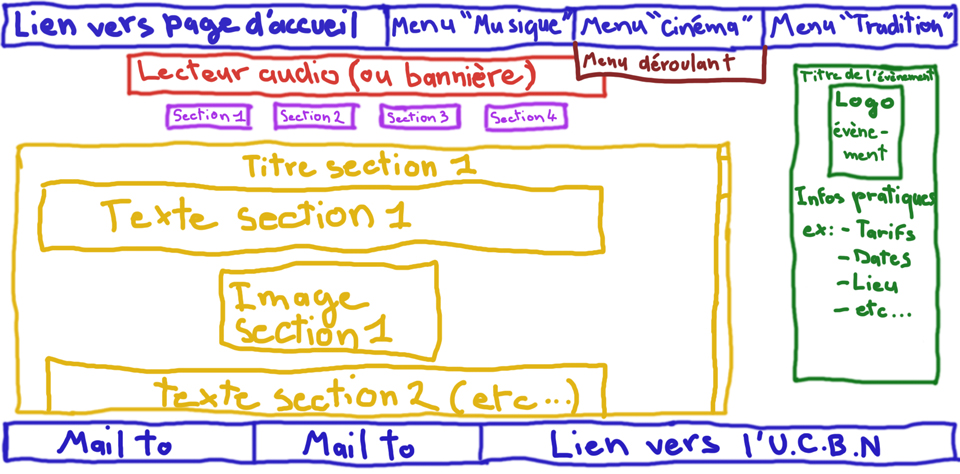 Lien vers page d'accueil
Menu "Musique"
Menu "Cinéma"
Menu "Tradition"
Menu déroulant
Lecteur audio (ou bannière)
Section 1
Section 2
Section 3
Section 4
Titre section 1
Texte section 1
Image
section 1
texte section 2 (etc...)
Titre de l'évènement
Logo
évène-
ment
Infos pratiques
ex: - Tarifs
- Dates
- Lieu
- etc...
Mail to
Mail to
Lien vers l'U.C.B.N